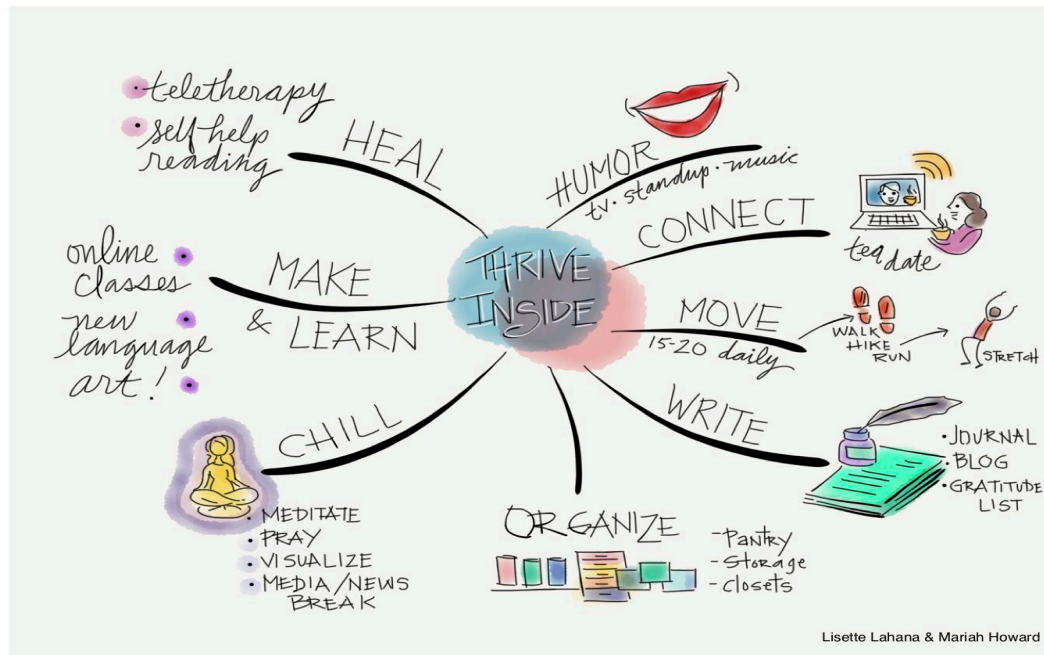 THRIVE
INSIDE
HEAL
teletherapy
self-help
reading
HUMOR
tv · standup · music
CONNECT
tea date
MOVE
15-20 daily
WALK
HIKE
RUN
STRETCH
WRITE
· JOURNAL
· BLOG
· GRATITUDE
LIST
ORGANIZE
- Pantry
- Storage
- closets
CHILL
· MEDITATE
· PRAY
· VISUALIZE
· MEDIA/NEWS
BREAK
MAKE
& LEARN
online
classes
new
language
art!
Lisette Lahana & Mariah Howard